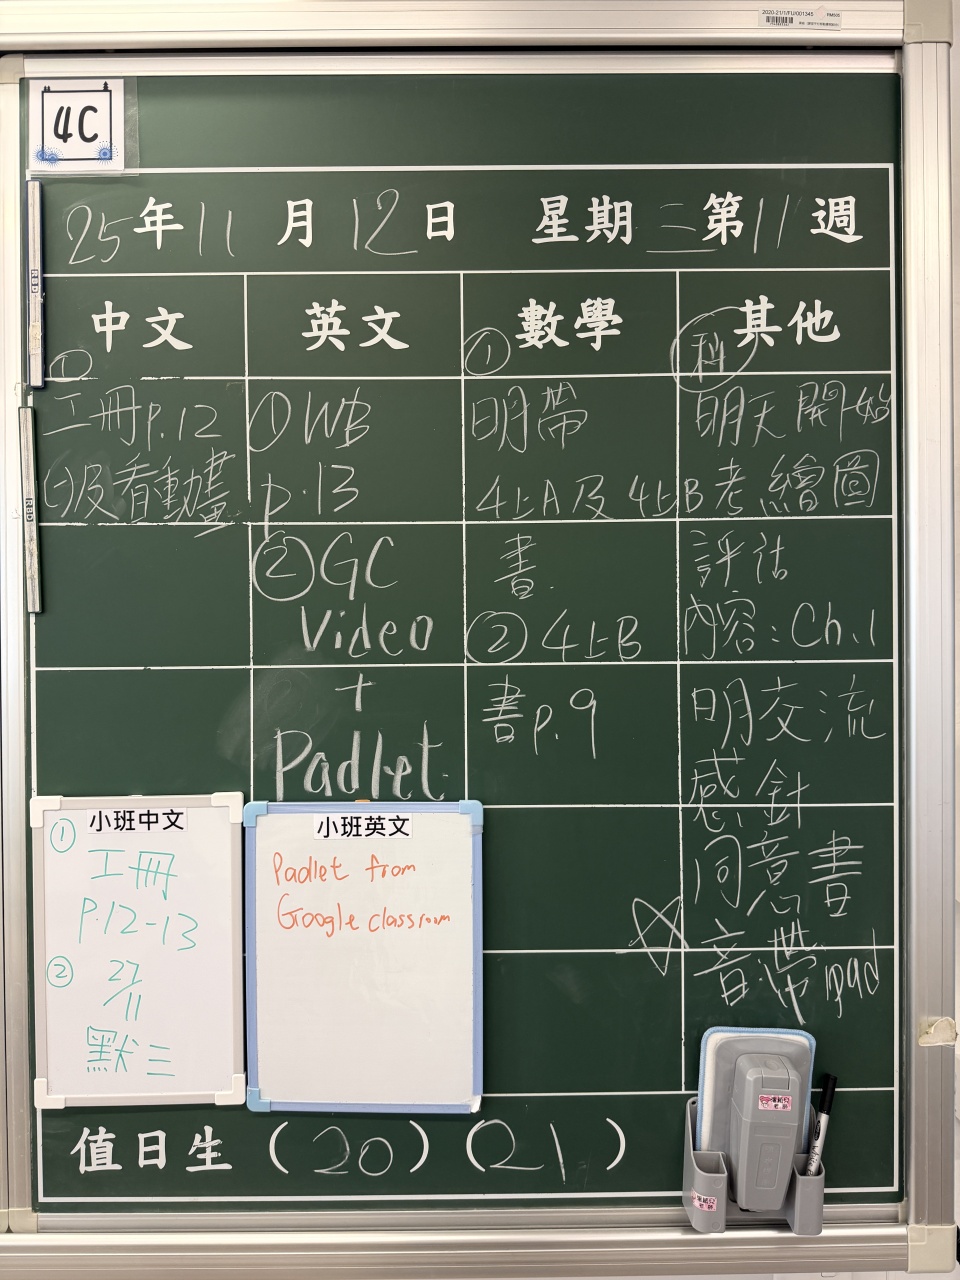 2020-21/1/FU/001345
4C
25年11月12日 星期三第11週
中文
①
工冊p.12
及看動畫
英文
①WB
p.13
②GC
Video
+
Padlet
數學
①
明帶
4上A及4上B
書.
②4上B
書p.9
其他
科
明天開始
考繪圖
評估
內容:Ch.1
明交流
感針
同意書
音:帶ipad
小班中文
①
工冊
P.12-13
②
27/11
默三
小班英文
Padlet from
Google classroom
值日生(20)(21)